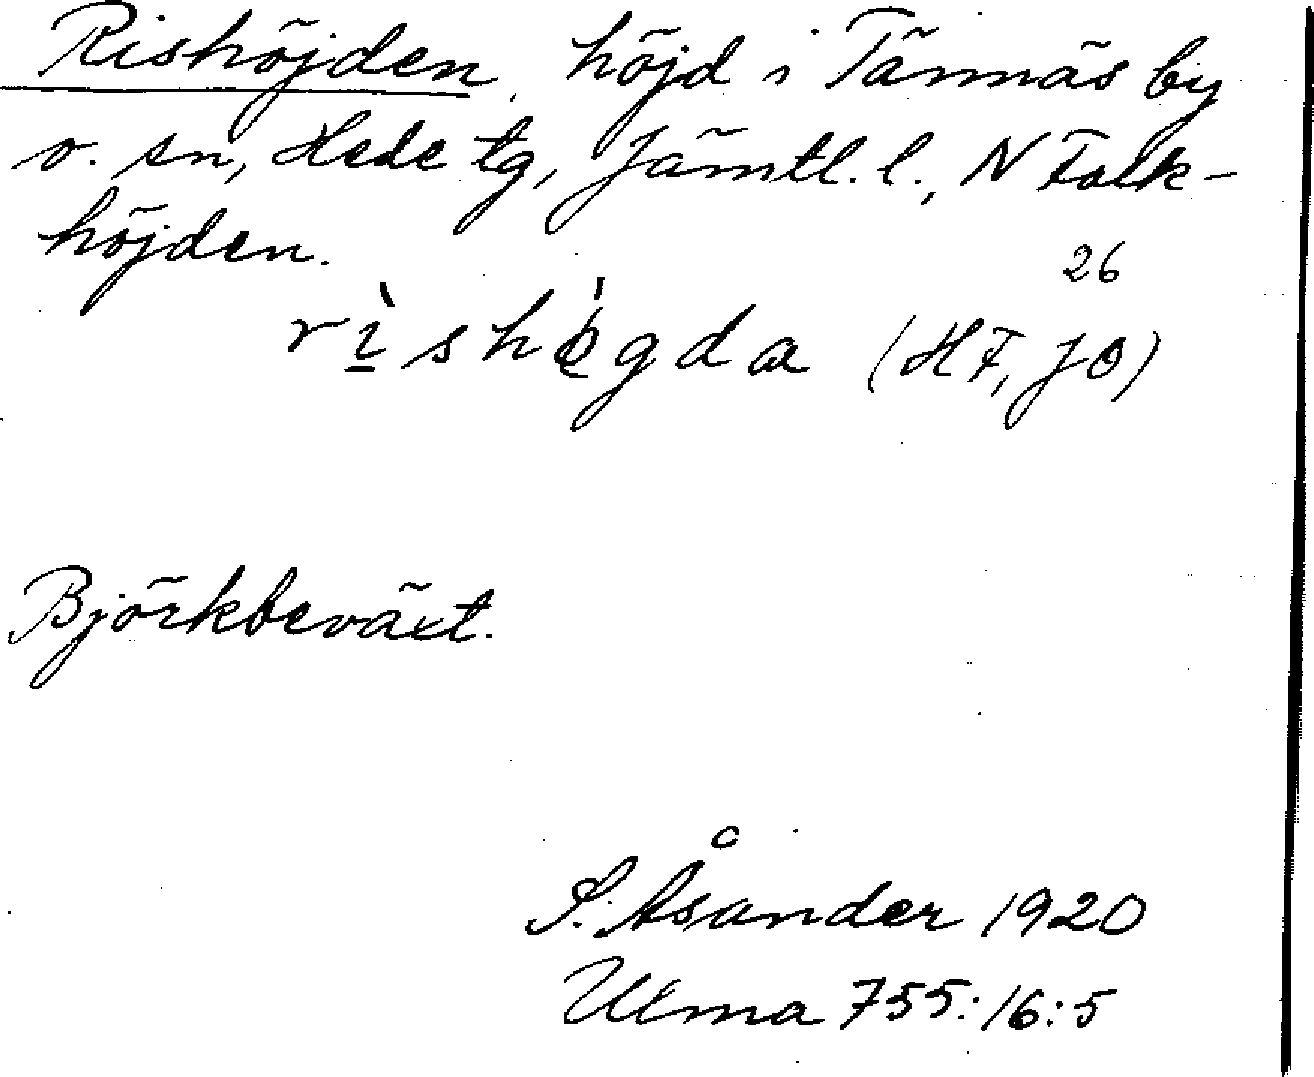 Rishöjden, höjd i Tännäs by
o. sn, Hede tg, Jämtl. l., N Falk-
höjden.
26
rı̀shø̀gda (HF, JO)
Björkbeväxt.
S. Åsander 1920
Ulma 755:16:5